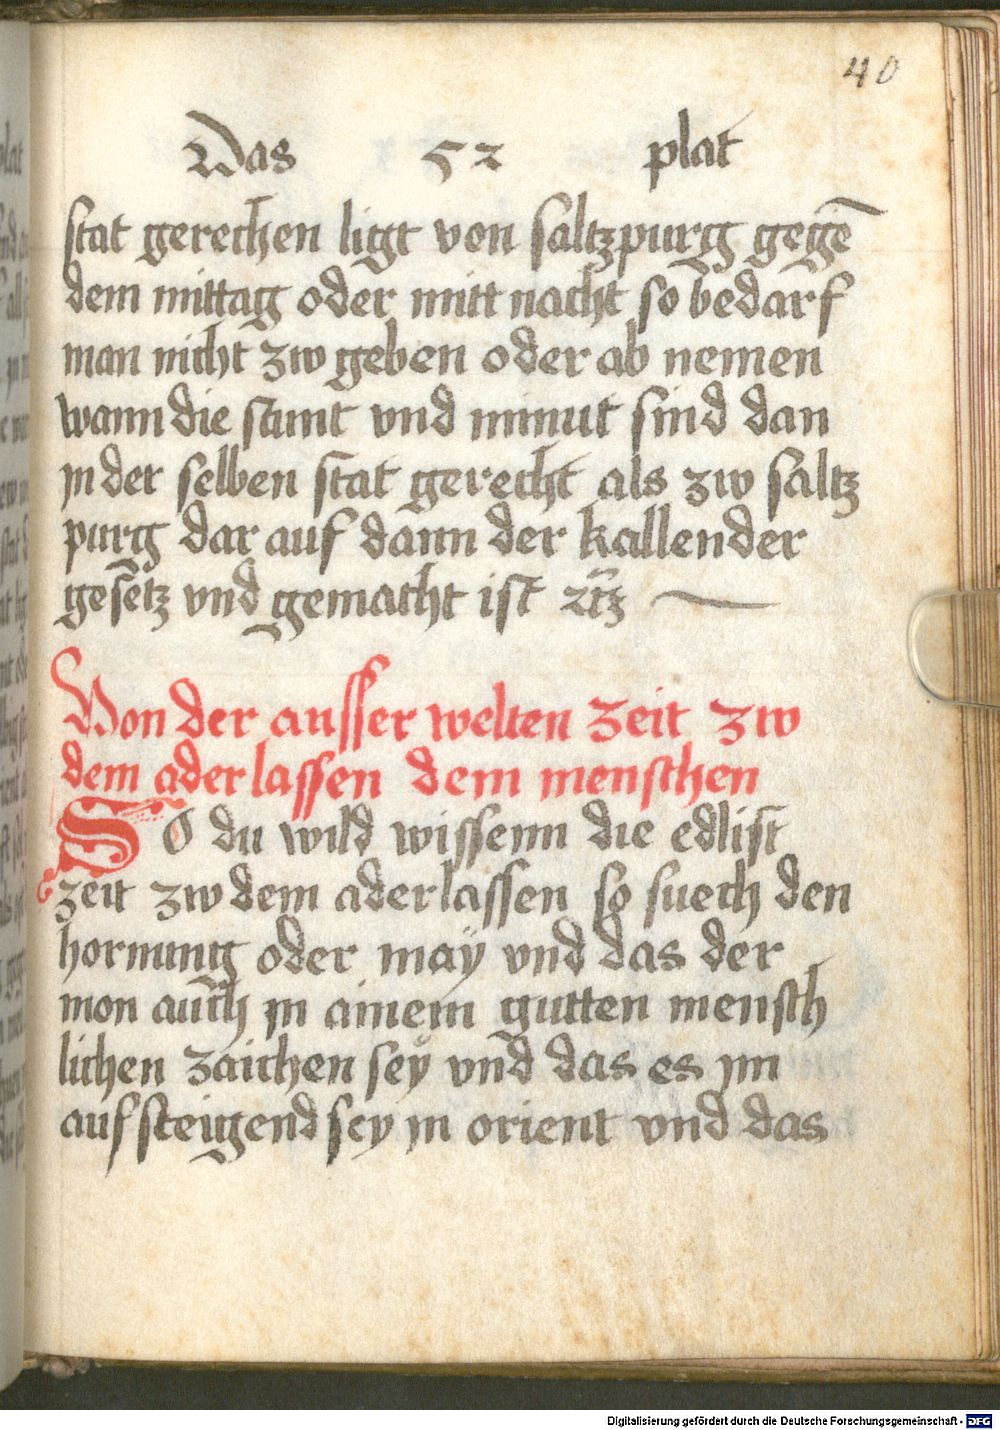 40
Das 52 plat
stat gerechen ligt von saltzpurg gegē
dem mittag oder mitt nacht so bedarf
man nicht zw geben oder ab nemen
wann die stunt vnd minut sind dan
in der selben stat gerecht als zw saltz
purg dar auf dann der kallender
gesetz vnd gemacht ist
Von der ausser welten zeit zw
dem aderlassen dem menschen
SO du wild wissenn die edlist
zeit zw dem aderlassen so suech den
hornung oder may vnd das der
mon auch in ainem gutten mensch
lichen zaichen sey vnd das es im
aufsteigend sey in orient vnd das
Digitalisierung gefördert durch die Deutsche Forschungsgemeinschaft - DFG